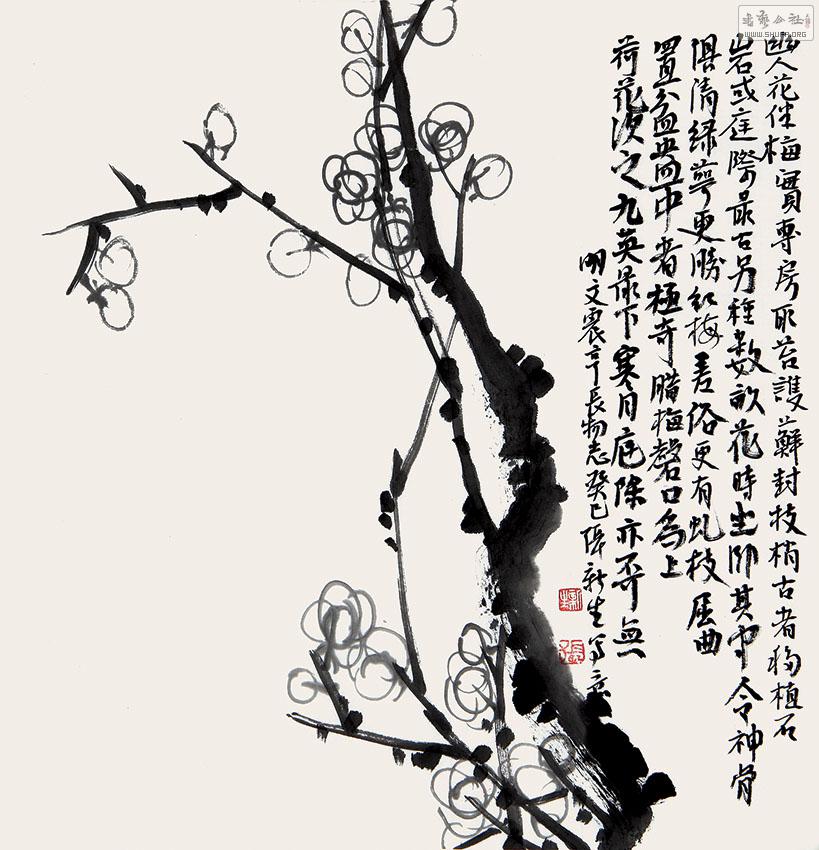 幽人花伴梅實專房取苔護蘚封枝梢古者移植石
岩或庭際最古另種數畝花時坐卧其中令神骨
俱清綠萼更勝紅梅差俗更有虬枝屈曲
置盆盎中者極奇腊梅磬口為上
荷花次之九英最下寒月庭除亦不可無
明文震亨長物志癸巳張新生寫意
新生
張
書藝公社
WWW.SHUFA.ORG